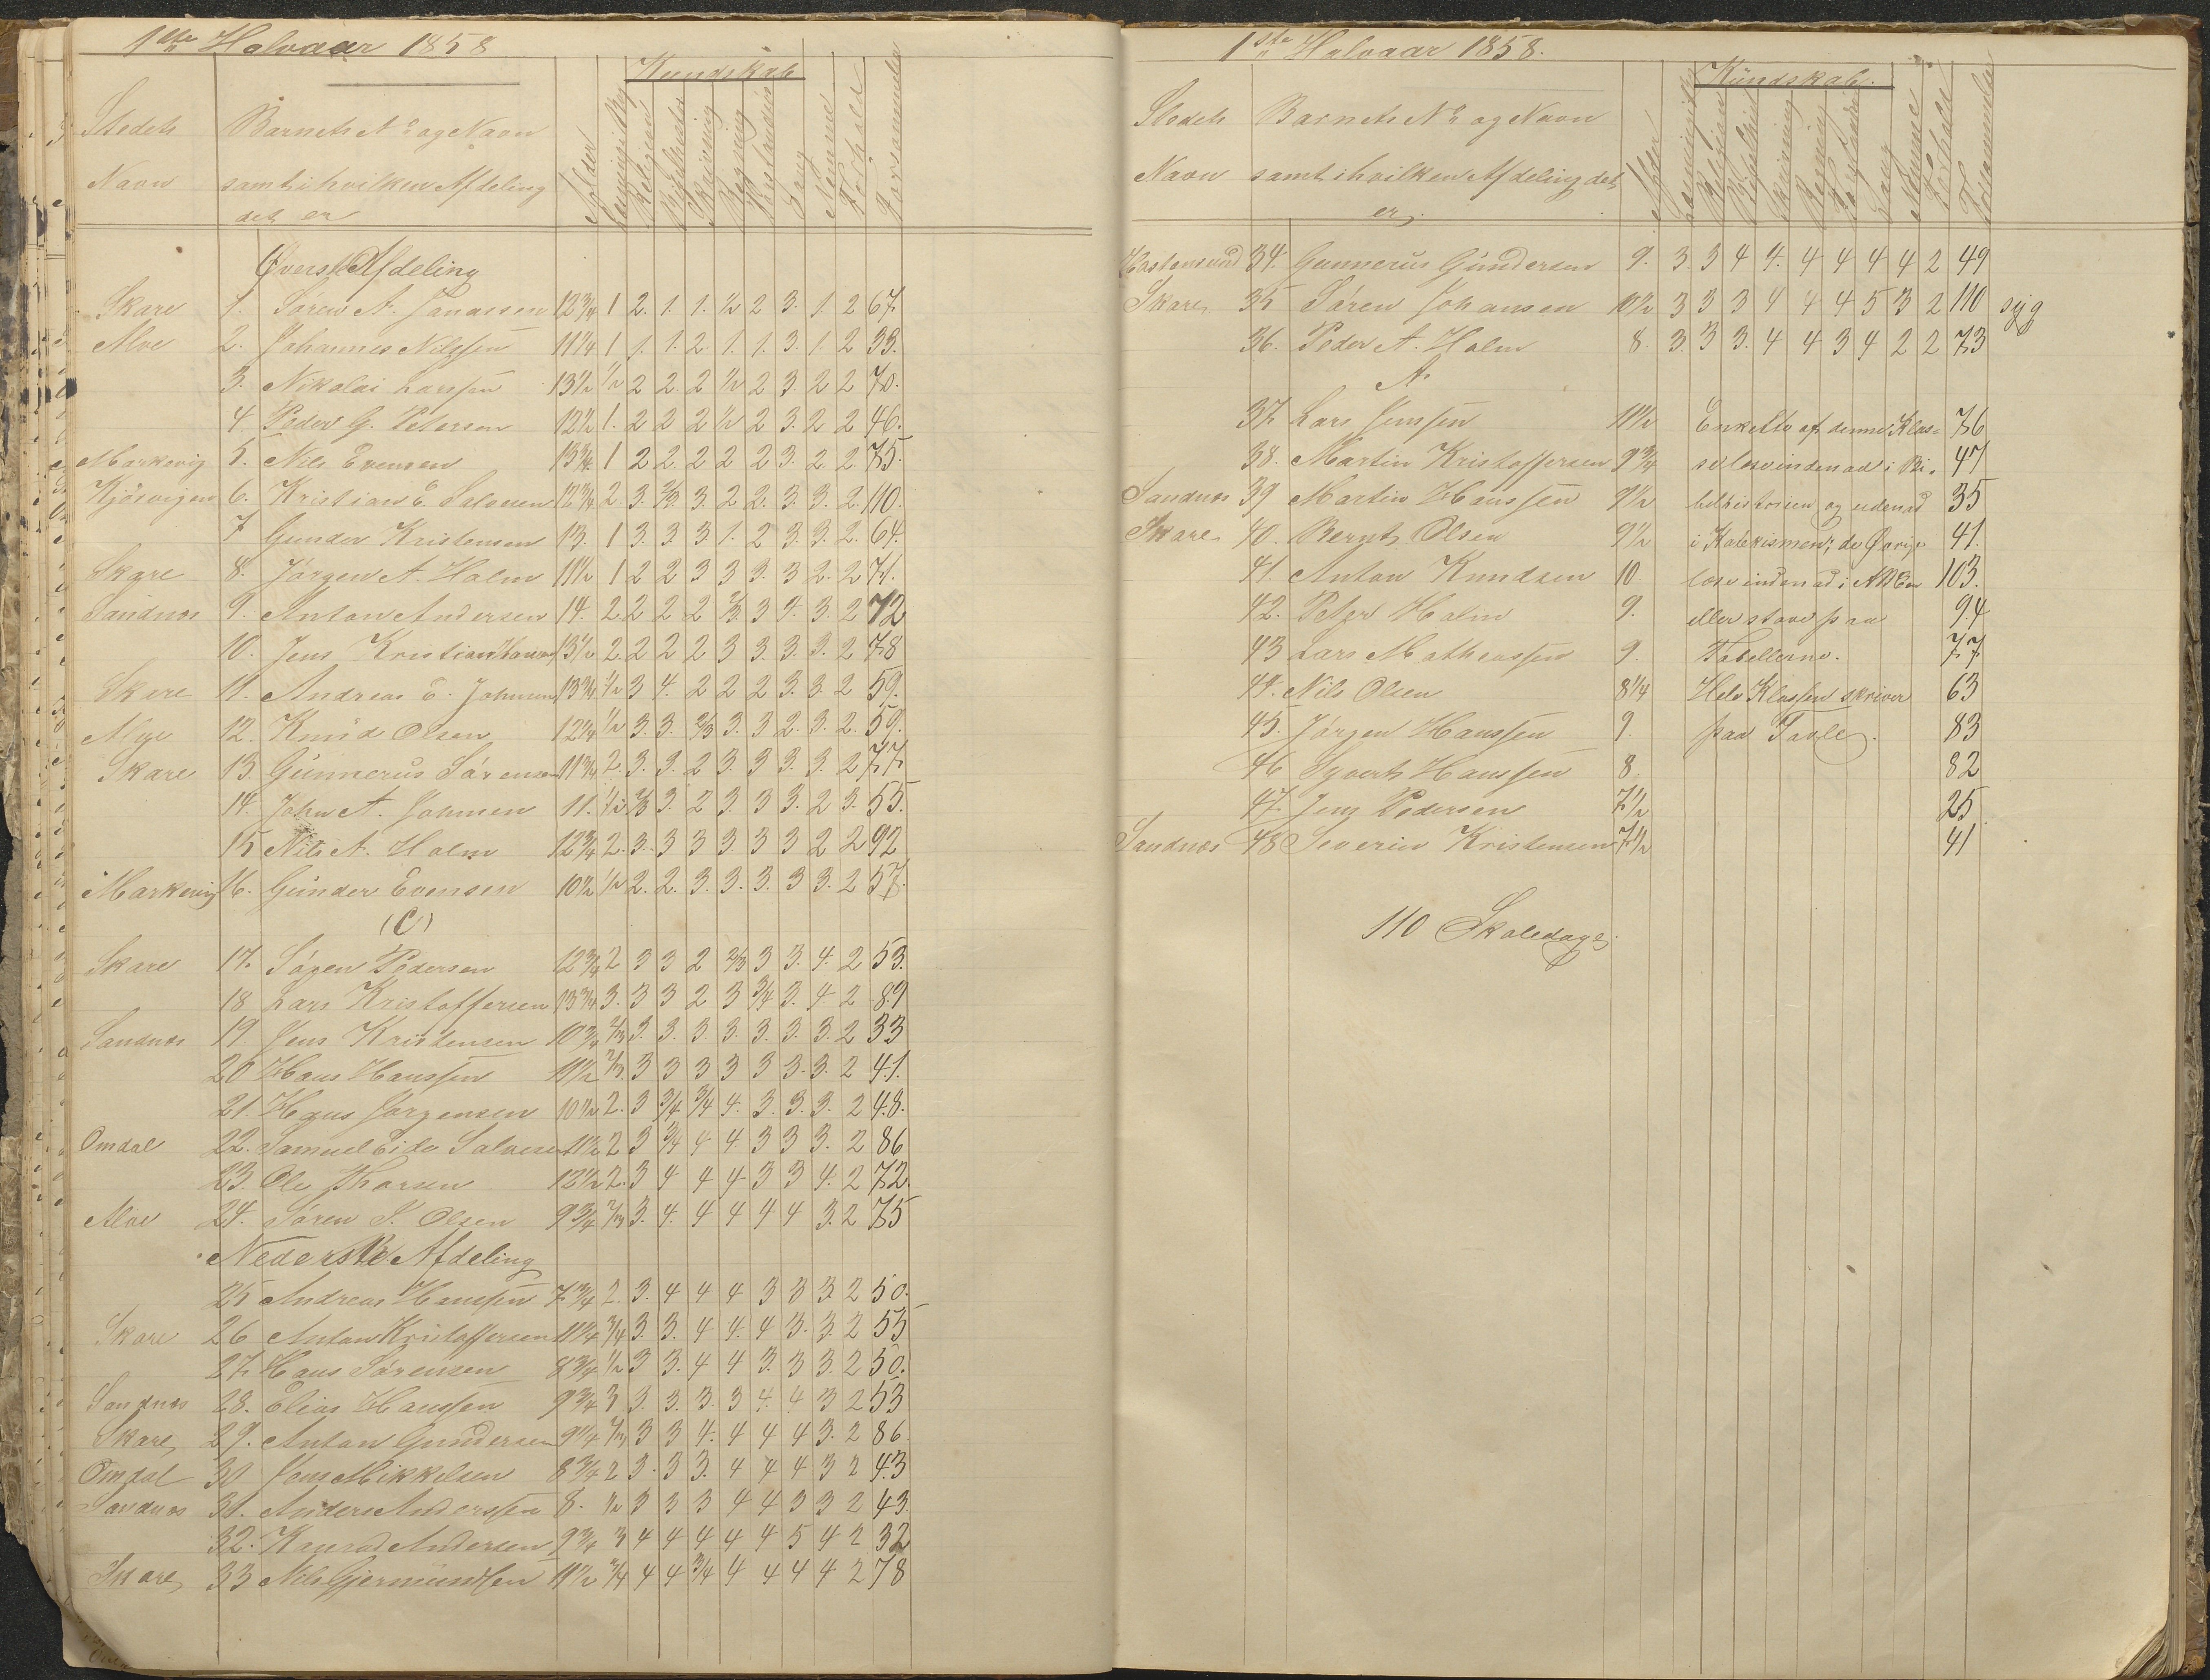 1ste Halvaar 1858
Kundskab
Stedets Barnets No og Navn
Navn samt i hvilken Afdeling
det er
Alder Religion Skrivning Regning Sang Nemme Forhold Forsømmelse
Øverste Afdeling
Skare 1. Søren A. Janassen 12 3/4 1 2. 1. 1. 1/2 2 3. 1. 2 67.
Aloe 2. Johannes Nilssen 11 1/4 1 1. 1. 2 1. 1. 3. 1. 2 33.
3. Nikolai Larssen 13 1/2 1/2 2 2. 2 1/2 2 3. 2 2 70.
4. Peder G. Petersen 12 1/2 1. 2 2 2 1/2 2 3. 2 2 46.
Markevig 5. Nils Evensen 13 3/4 1 2 2 2 2 2 3. 2. 2. 75.
Kjøsvigen 6. Kristian E. Salvesen 12 3/4 2. 3. 2/3 3. 2 2. 3. 3. 2. 110.
7 Gunder Kristensen 13. 1 3. 3. 3 1. 2 3. 3. 2. 64.
Skare 8. Jørgen A. Holm 11 1/2 1 2 2 3 3 3. 3 2. 2 71.
Sandnæs 9. Anton Andersen 14. 2. 2 2 2 2/3 3 4. 3. 2 72
10. Jens Kristian Hansen 13 1/2 2. 2 2 2 3 3. 3. 3. 2 78
Skare 11. Andreas E. Johnsen 13 3/4 1/2 3 4. 2 2 2 3. 3. 2 59.
12. Knud Olsen 12 1/4 1/2 3. 3. 2/3 3. 3 2. 3. 2. 59.
Skare 13. Gunnerus Sørensen 11 3/4 2. 3. 3. 2 3. 3 3. 3. 2 77
14. John A. Johnsen 11. 1/2 2/3 3. 2 3. 3 3. 2 3. 55.
15 Nils A. Holm 12 3/4 2. 3. 3 3 3. 3 3 2 2 92
Markevig 16. Gunder Evensen 10 1/2 1/2 2. 2. 3. 3. 3. 3 3. 2 57.
(C)
Skare 17. Søren Pedersen 12 3/4 2 3 3 2 2/3 3 3. 4. 2 53.
18 Lars Kristoffersen 13 3/4 3. 3 3 2 3 3/4 3. 4. 2 89
Sandnæs 19. Jens Kristensen 10 3/4 2/3 3. 3. 3. 3. 3. 3. 3. 2 33
20 Hans Hanssen 11 1/2 2/3 3 3 3 3 3 3. 3. 2 41.
21. Hans Jørgensen 10 1/2 2. 3 3/4 3/4 4. 3. 3. 3. 2 48.
Omdal 22. Samuel Eide Salvesen 11 1/2 2 3 3/4 4 4. 3 3 3. 2 86
23. Ole Thorsen 12 1/2 2. 3 4 4 4 3 3 4. 2 72.
Aloe 24. Søren S. Olsen 9 3/4 2/3 3. 4. 4 4 4 4 3. 2 75
Nederste Afdeling
25 Andreas Hanssen 7 3/4 2. 3. 4 4 4 3 3 3. 2 50.
Skare 26 Anton Kristoffersen 11 1/4 3/4 3. 3. 4 4. 4 3. 3. 2 55
27. Hans Sørensen 8 3/4 1/2 3 3. 4 4 3. 3 3. 2 50.
Sandnæs 28. Elias Hanssen 9 3/4 3 3. 3. 3. 3 4. 4 3 2 53
Skare 29. Anton Gundersen 9 1/4 2/3 3 3 4. 4 4 4 3. 2 86.
Omdal 30 Jens Mikkelsen 8 3/4 2 3. 3 3. 4 4 4 3 2 43
Sandnæs 31. Anders Anderssen 8. 1/2 3 3 3 4 4 3 3 2 43.
32. Konrad Andersen 9 3/4 3 4 4 4 4 4 5 4 2 32
Skare 33 Nils Gjermundsen 11 1/2 3/4 4 4 3/4 4 4 4 4 2 78
1ste Halvaar 1858.
Kundskab.
Stedets Barnets No og Navn
Navn samt i hvilken Afdeling det
er.
Alder Religion Skrivning Regning Sang Nemme Forhold Forsømmelse
34. Gunnerus Gundersen 9. 3. 3 4 4. 4 4 4 4 2 49
Skare 35 Søren Johansen 10 1/2 3 3 3 4 4 4 5 3 2 110 syg
36. Peder A. Holm 8. 3. 3 3. 4 4 3 4 2 2 73
A.
37. Lars Jenssen 11 1/2 Enkelte af denne Klas= 76
38. Martin Kristoffersen 9 3/4 se læse inden ad i Bi= 47
Sandnæs 39 Martin Hanssen 9 1/2 belhistorien og udenad 35
Skare 40. Bernt Olsen 9 1/2 i Katekismen; de Øvrige 41.
41. Anton Knudsen 10. læse inden ad i ABCen 103.
42. Peter Holm 9. eller stave paa 94
43 Lars Matheassen 9. Tabellerne. 77
44. Nils Olsen 8 1/4 Hele Klassen skriver 63
45. Jørgen Hanssen 9. paa Tavle. 83
46 Syvert Hanssen 8. 82
47. Jens Pedersen 7 1/2 25
Sandnæs 48 Severin Kristensen 7 1/2 41
110 Skoledage.